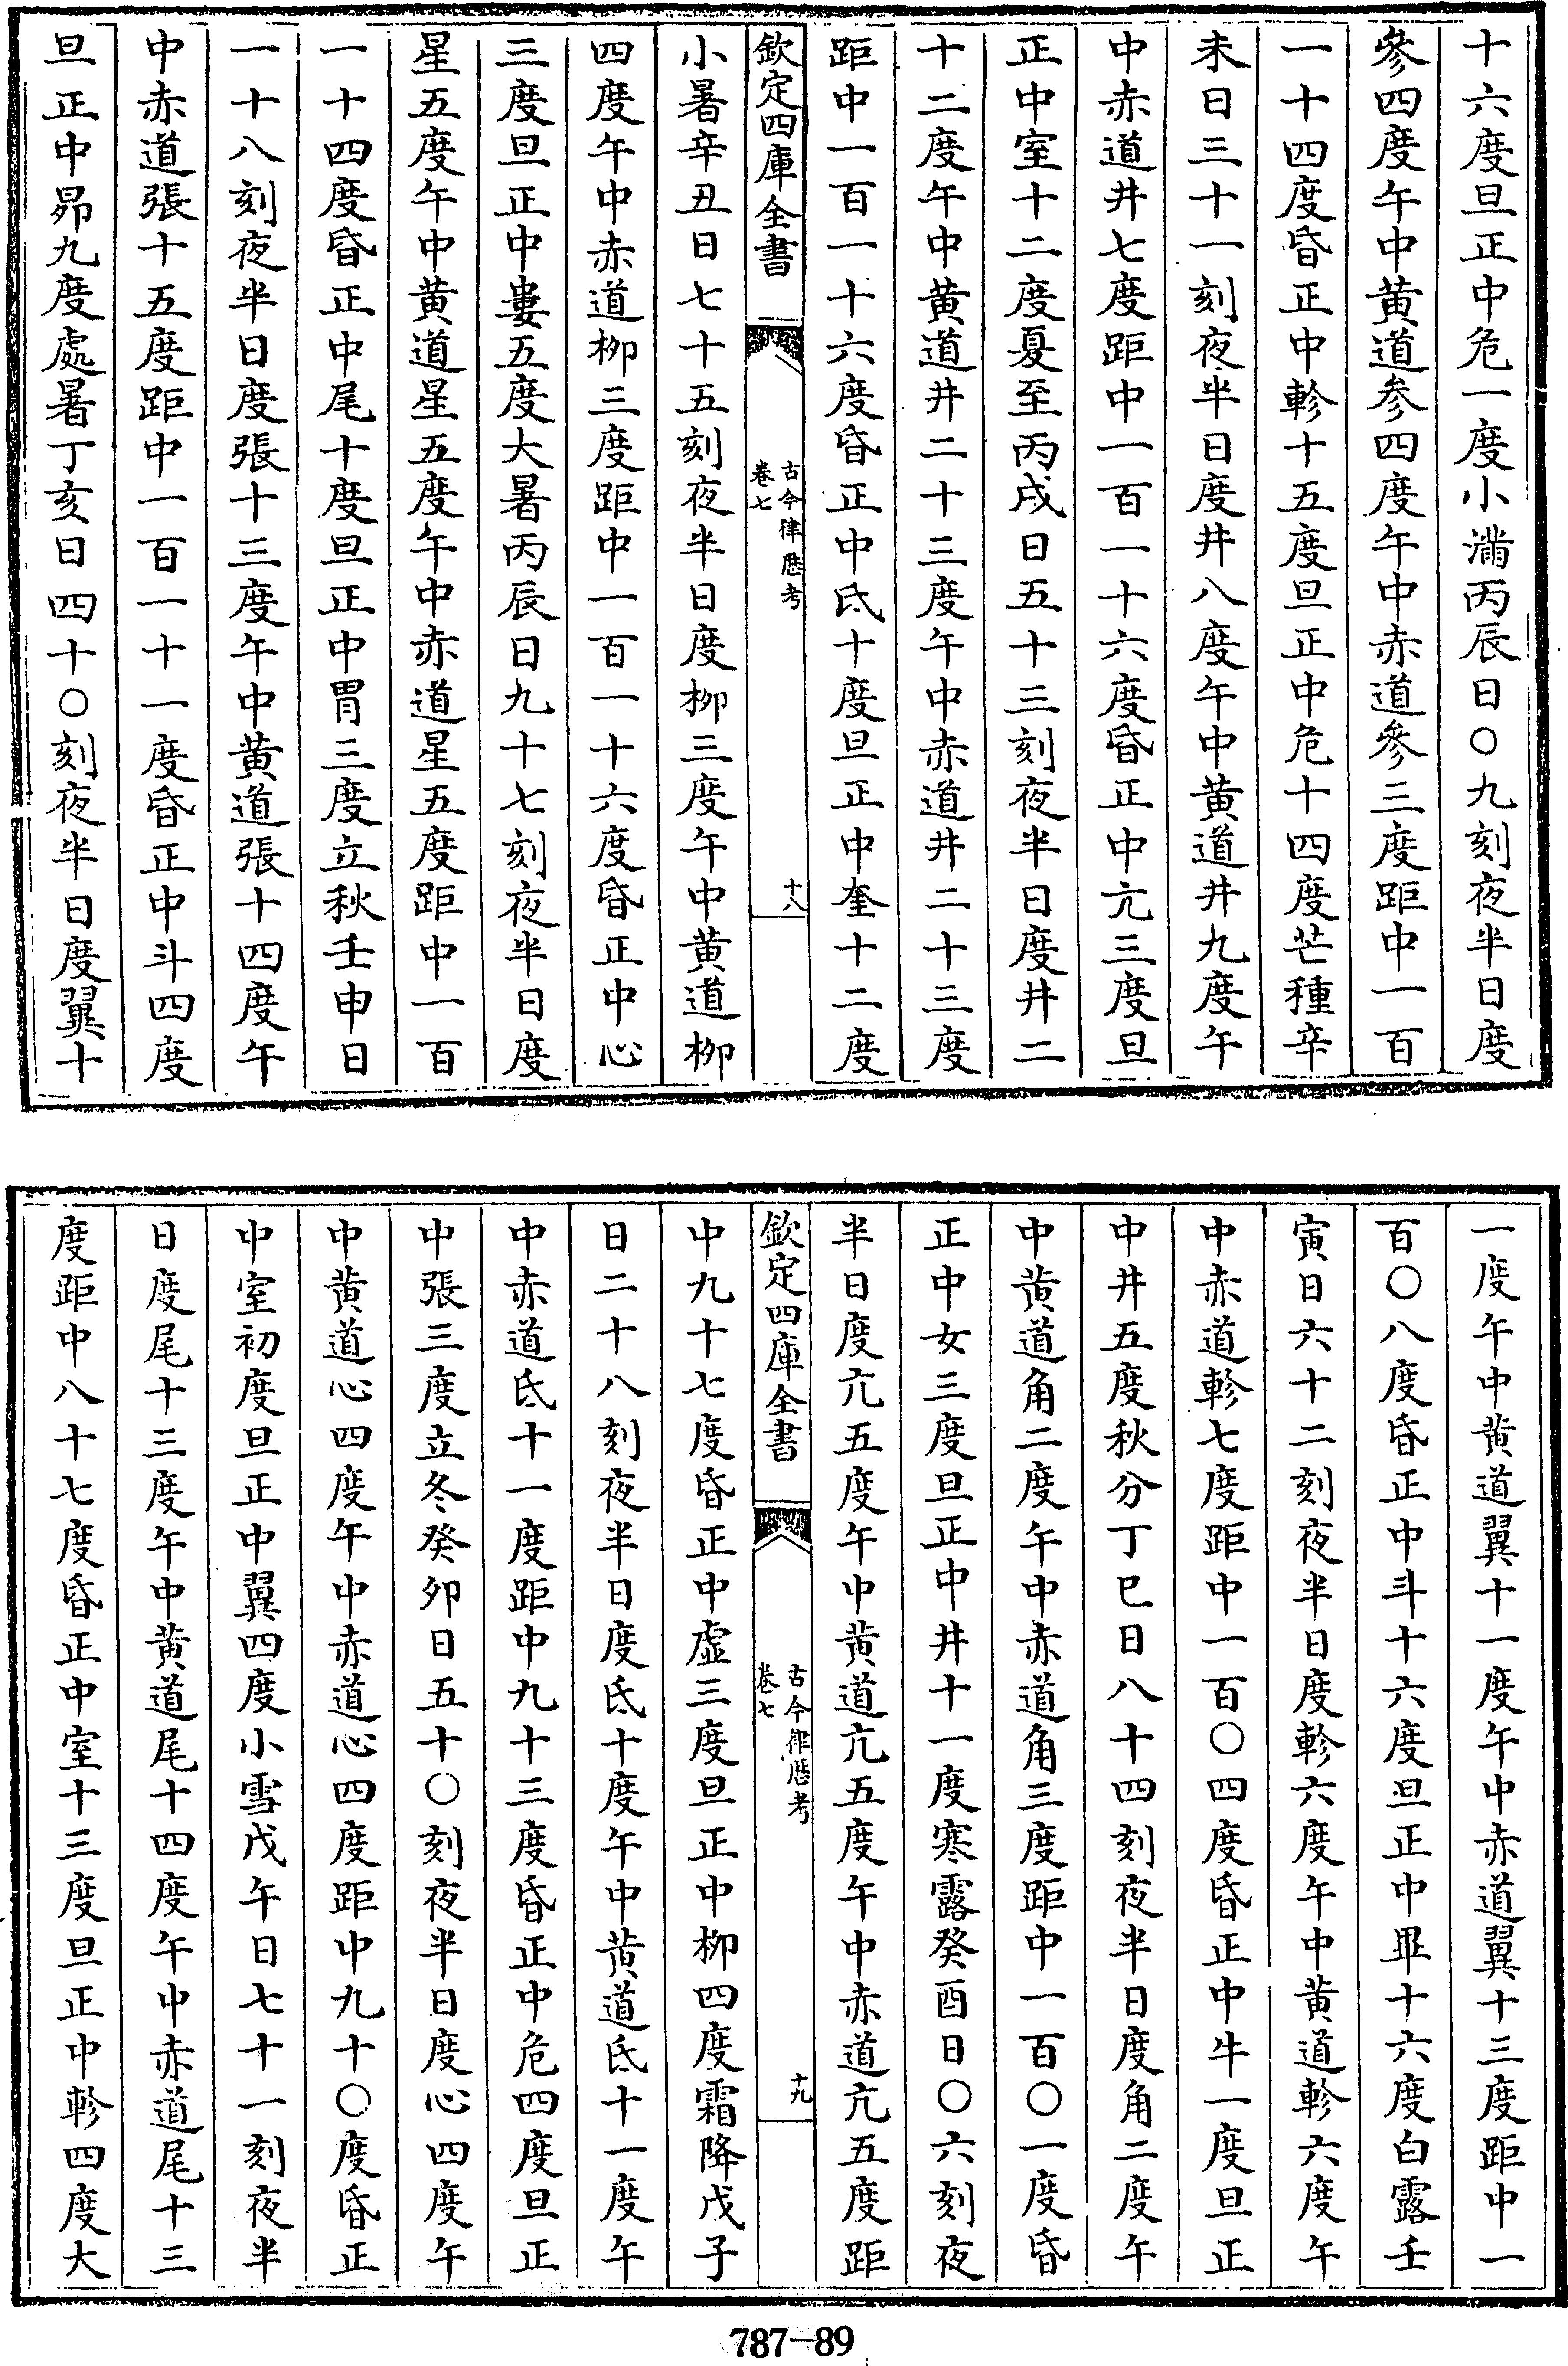 十六度旦正中危一度小滿丙辰日〇九刻夜半日度
參四度午中黄道参四度午中赤道參三度距中一百
一十四度昏正中軫十五度旦正中危十四度芒種辛
未日三十一刻夜半日度井八度午中黄道井九度午
中赤道井七度距中一百一十六度昏正中亢三度旦
正中室十二度夏至丙戌日五十三刻夜半日度井二
十二度午中黄道井二十三度午中赤道井二十三度
距中一百一十六度昏正中氐十度旦正中奎十二度
欽定四庫全書
古今律歴考
卷七
十八
小暑辛丑日七十五刻夜半日度柳三度午中黄道柳
四度午中赤道柳三度距中一百一十六度昏正中心
三度旦正中婁五度大暑丙辰日九十七刻夜半日度
星五度午中黄道星五度午中赤道星五度距中一百
一十四度昏正中尾十度旦正中胃三度立秋壬申日
一十八刻夜半日度張十三度午中黄道張十四度午
中赤道張十五度距中一百一十一度昏正中斗四度
旦正中昴九度處暑丁亥日四十〇刻夜半日度翼十
一度午中黄道翼十一度午中赤道翼十三度距中一
百〇八度昏正中斗十六度旦正中畢十六度白露壬
寅日六十二刻夜半日度軫六度午中黄道軫六度午
中赤道軫七度距中一百〇四度昏正中牛一度旦正
中井五度秋分丁巳日八十四刻夜半日度角二度午
中黄道角二度午中赤道角三度距中一百〇一度昏
正中女三度旦正中井十一度寒露癸酉日〇六刻夜
半日度亢五度午中黄道亢五度午中赤道亢五度距
欽定四庫全書
古今律歴考
卷七
十九
中九十七度昏正中虛三度旦正中柳四度霜降戊子
日二十八刻夜半日度氐十度午中黄道氐十一度午
中赤道氐十一度距中九十三度昏正中危四度旦正
中張三度立冬癸卯日五十〇刻夜半日度心四度午
中黄道心四度午中赤道心四度距中九十〇度昏正
中室初度旦正中翼四度小雪戊午日七十一刻夜半
日度尾十三度午中黄道尾十四度午中赤道尾十三
度距中八十七度昏正中室十三度旦正中軫四度大
787-89